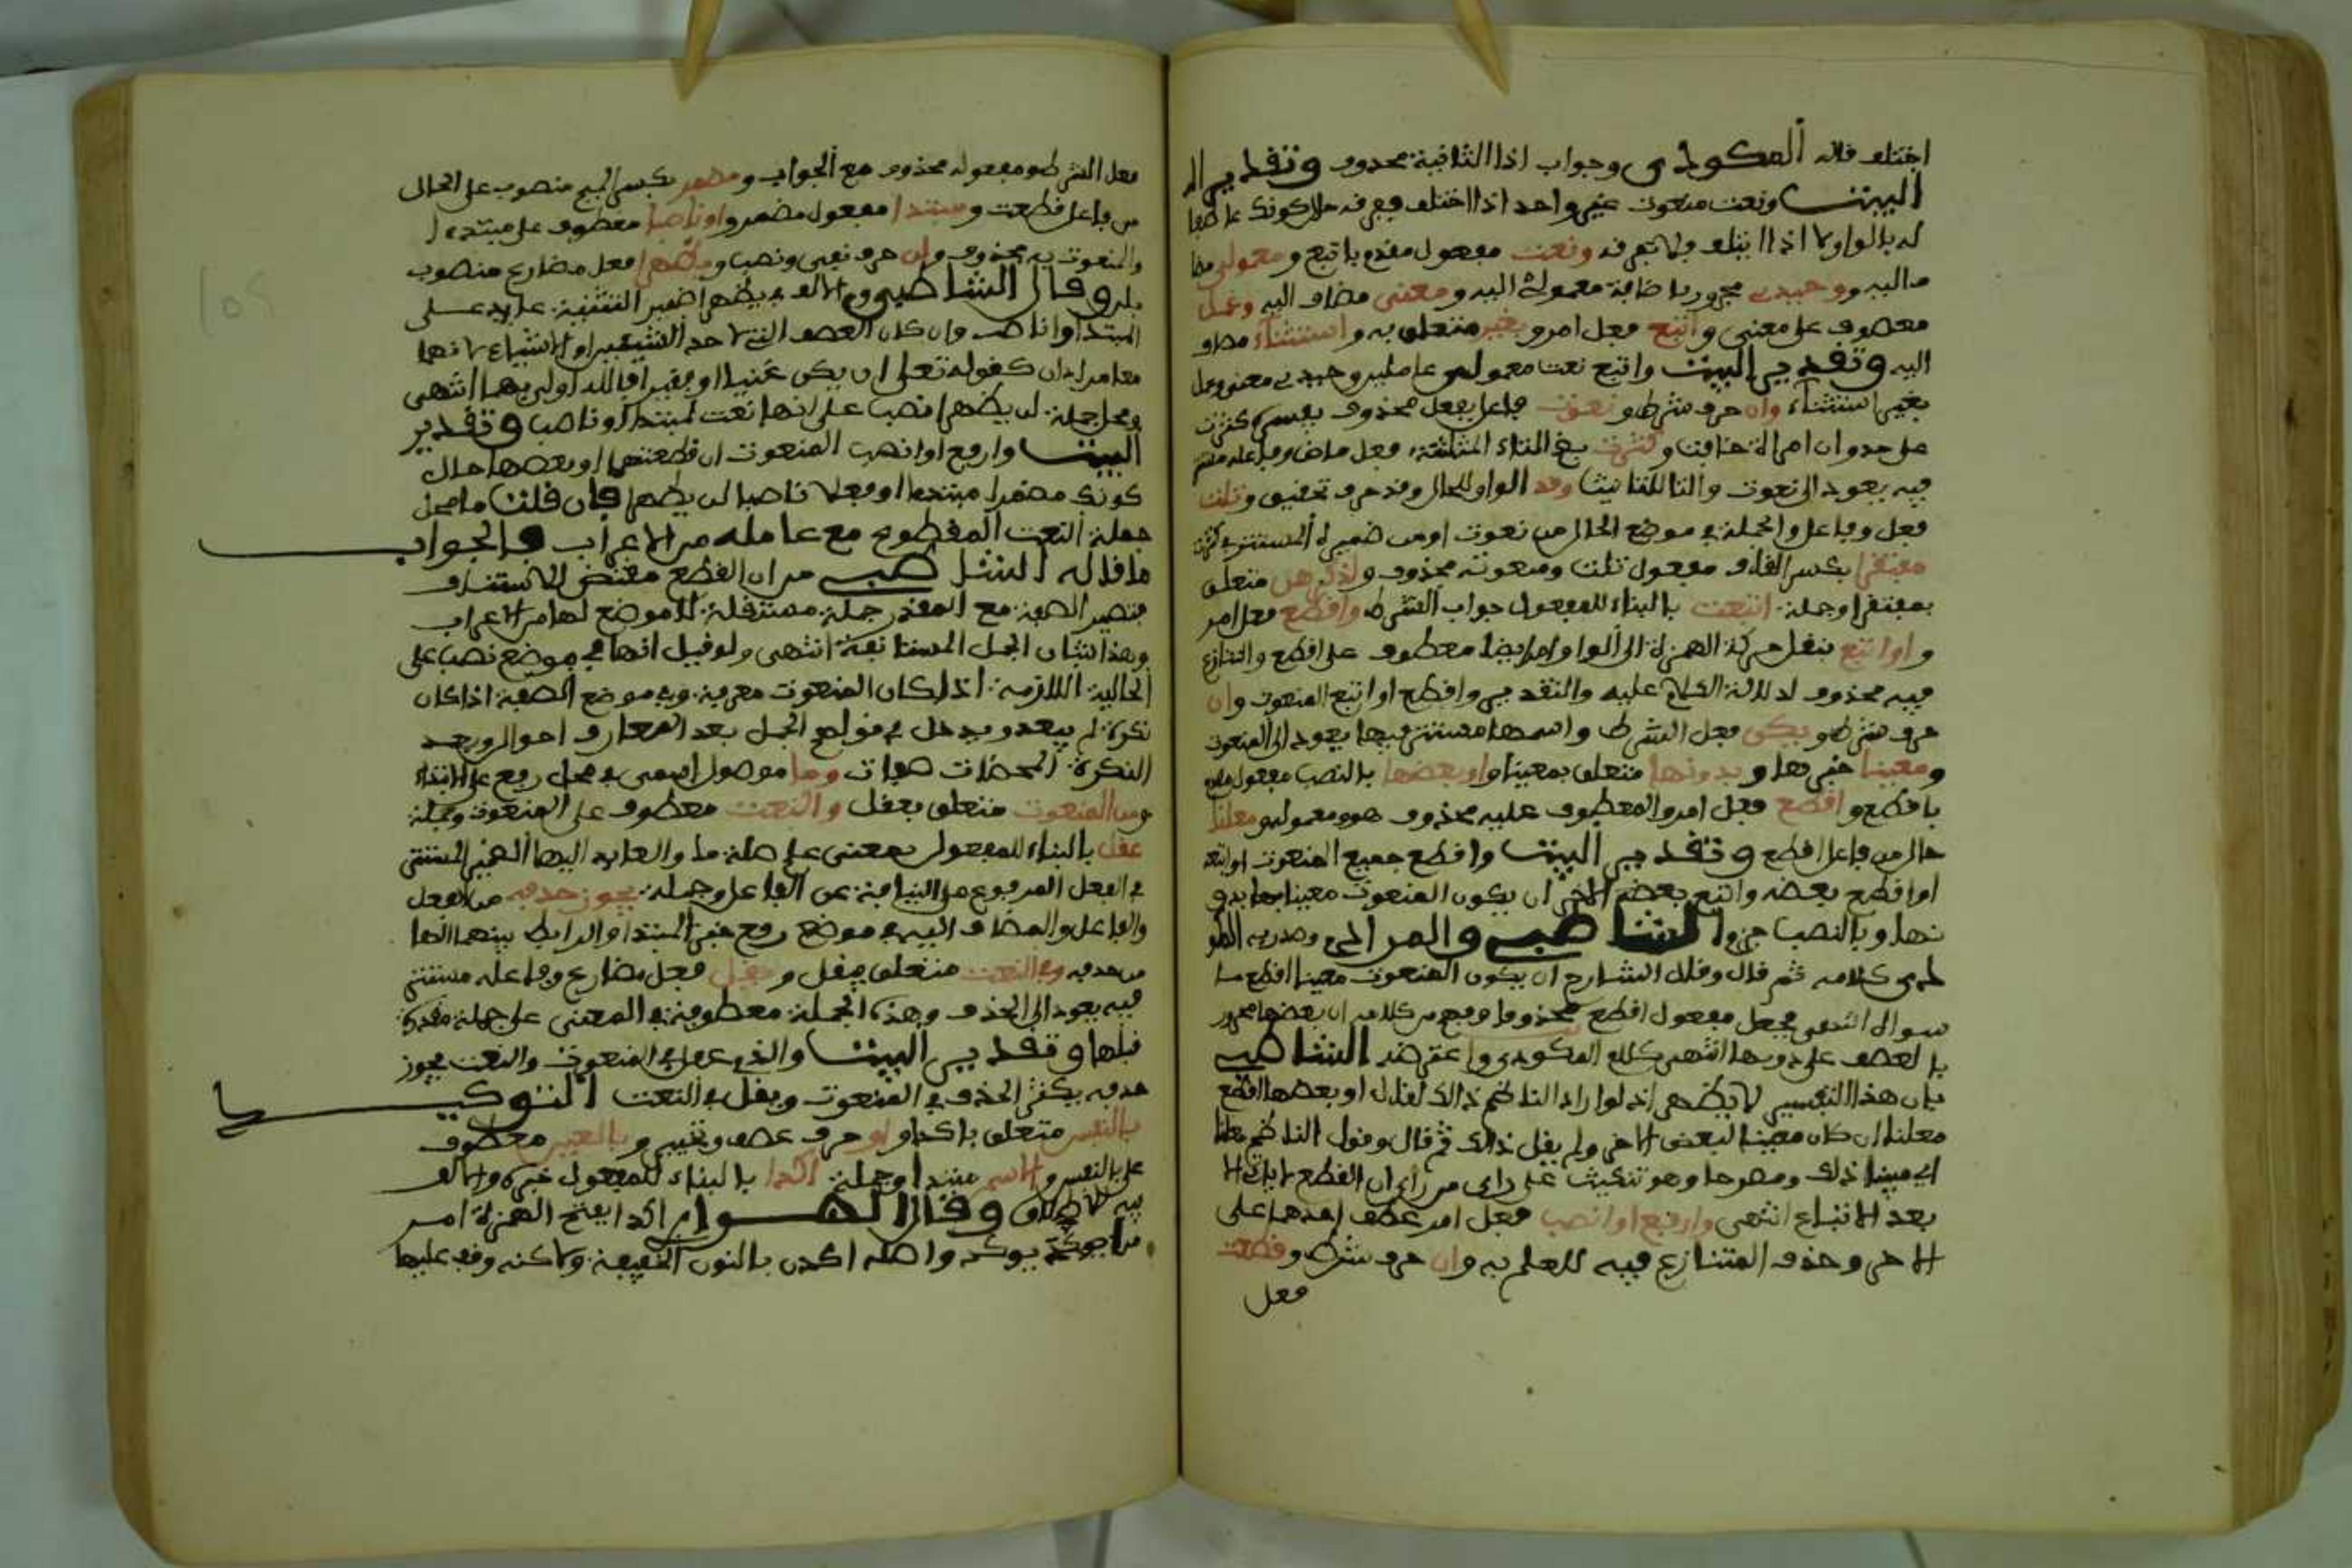 اختلف قاله المكودي وجواب اذا الثانية محذوف وتقدير
البيت ونعت منعوت غير واحد اذا اختلف ففرقه حال كونك عاطفا
له بالواو لا اذا ائتلف فلا تفرقه ونعت مفعول مقدم باتبع ومعمولي مضا
ف اليه ووحيدي مجرور باضافة معمولي اليه ومعنى مضاف اليه وعمل
معطوف على معنى واتبع فعل امر وبغير متعلق به واستثناء مضاف
اليه وتقدير البيت واتبع نعت معمولي عاملين وحيدي معنى وعمل
بغير استثناء وان حرف شرط ونعوت فاعل بفعل محذوف يفسره كثرت
على حد وان امراة خافت وكثرت بفتح الثاء المثلثة فعل ماض وفاعله مستتر
فيه يعود الى نعوت والتا للتانيث وقد الواو للحال وقد حرف تحقيق وتلت
فعل وفاعل والجملة في موضع الحال من نعوت او من ضميره المستتر في كثرت
مفتقرا بكسر القاف مفعول تلت ومنعوته محذوف ولذكرهن متعلق
بمفتقرا وجملة اتبعت بالبناء للمفعول جواب الشرط واقطع فعل امر
واو اتبع بنقل حركة الهمزة الى الواو امر ايضا معطوف على اقطع والتنازع
فيه محذوف لدلالة الكلام عليه والتقدير واقطع او اتبع المنعوت وان
حرف شرط ويكن فعل الشرط واسمها مستتر فيها يعود الى المنعوت
ومعينا خبرها وبدونها متعلق بمعينا واو بعضها بالنصب مفعول مقدم
باقطع واقطع فعل امر والمعطوف عليه محذوف هو ومعموله ومعلنا
حال من فاعل اقطع وتقدير البيت واقطع جميع المنعوت او اتبعه
او اقطع بعضه واتبع بعضه الاخر ان يكون المنعوت معينا بها بدو
نها وبالنصب جزم الشاطبي والمرادي وصدر به المكو
دي كلامه ثم قال وقال الشارح ان يكون المنعوت معينا اقطع ما
سواه انتهى فجعل مفعول اقطع محذوفا وفهم من كلامه ان بعضها مجرور
بالعطف على دونها انتهى كلام المكودي واعترضه الشاطبي
بان هذا التفسير لا يظهر اذ لو اراد الناظم ذالك لقال او بعضها اقطع
معلنا ان كان معينا لبعض الاخر ولم يقل ذالك ثم قال وقول الناظم معلنا
اي مبينا ذلك ومصرحا وهو تنكيت على راي من راى ان القطع لا يكون الا
بعد الاتباع انتهى وارفع او انصب فعل امر عطف احدهما على
الاخر وحذف المتنازع فيه للعلم به وان حرف شرط وقطعت
فعل
فعل الشرط ومفعوله محذوف مع الجواب ومضمرا بكسر الميم منصوب على الحال
من فاعل قطعت ومبتدا مفعول مضمر واو ناصبا معطوف على مبتدء ا
والمنعوت به محذوف ولن حرف نفي ونصب ويظهرا فعل مضارع منصوب
بلن وقال الشاطبي والالف في يظهرا ضمير التثنية عايد على
المبتدا والناصب وان كان العطف الذي لاحد الشيئين او الاشياء لانهما
معا مرادان كقوله تعلى ان يكن غنيا او فقيرا فالله اولى بهما انتهى
ومحل جملة لن يظهرا نصب على انها نعت لمبتدا او ناصب وتقدير
البيت وارفع او انصب المنعوت ان قطعتها او بعضها حال
كونك مضمرا مبتدءا او فعلا ناصبا لن يظهرا فان قلت ما محل
جملة النعت المقطوع مع عامله من الاعراب فالجواب
ما قاله الشاطبي من ان القطع مقتض للاستئناف
فتصير الصفة مع المقدر جملة مستقلة لا موضع لها من الاعراب
وهذا شان الجمل المستانفة انتهى ولو قيل انها في موضع نصب على
الحالية اللازمة اذا كان المنعوت معرفة وفي موضع الصفة اذا كان
نكرة لم يبعد ويدخل في قولهم الجمل بعد المعارف احوال وبعد
النكرة المحضات صفات وما موصول اسمي في محل رفع على الابتداء
ومن المنعوت متعلق بعقل والنعت معطوف على المنعوت وجملة
عقل بالبناء للمفعول بمعنى علم صلة ما والعايد اليها الضمير المستتر
في الفعل المرفوع على النيابة عن الفاعل وجملة يجوز حذفه من الفعل
والفاعل والمضاف اليه في موضع رفع خبر المبتدا والرابط بينهما الها
من حذفه وفي النعت متعلق بيقل ويقل فعل مضارع وفاعله مستتر
فيه يعود الى الحذف وهذه الجملة معطوفة في المعنى على جملة مقدرة
قبلها وتقدير البيت والذي عقل في المنعوت والنعت يجوز
حذفه يكثر الحذف في المنعوت ويقل في النعت التوكيد
بالنفس متعلق باكدا واو حرف عطف وتخيير وبالعين معطوف
على بالنفس والاسم مبتدا وجملة اكدا بالبناء للمفعول خبره والالف
فيه للاطلاق وقال الهواري اكدا بفتح الهمزة امر
من اكد يوكد واصله اكدن بالنون الخفيفة ولاكنه وقف عليها